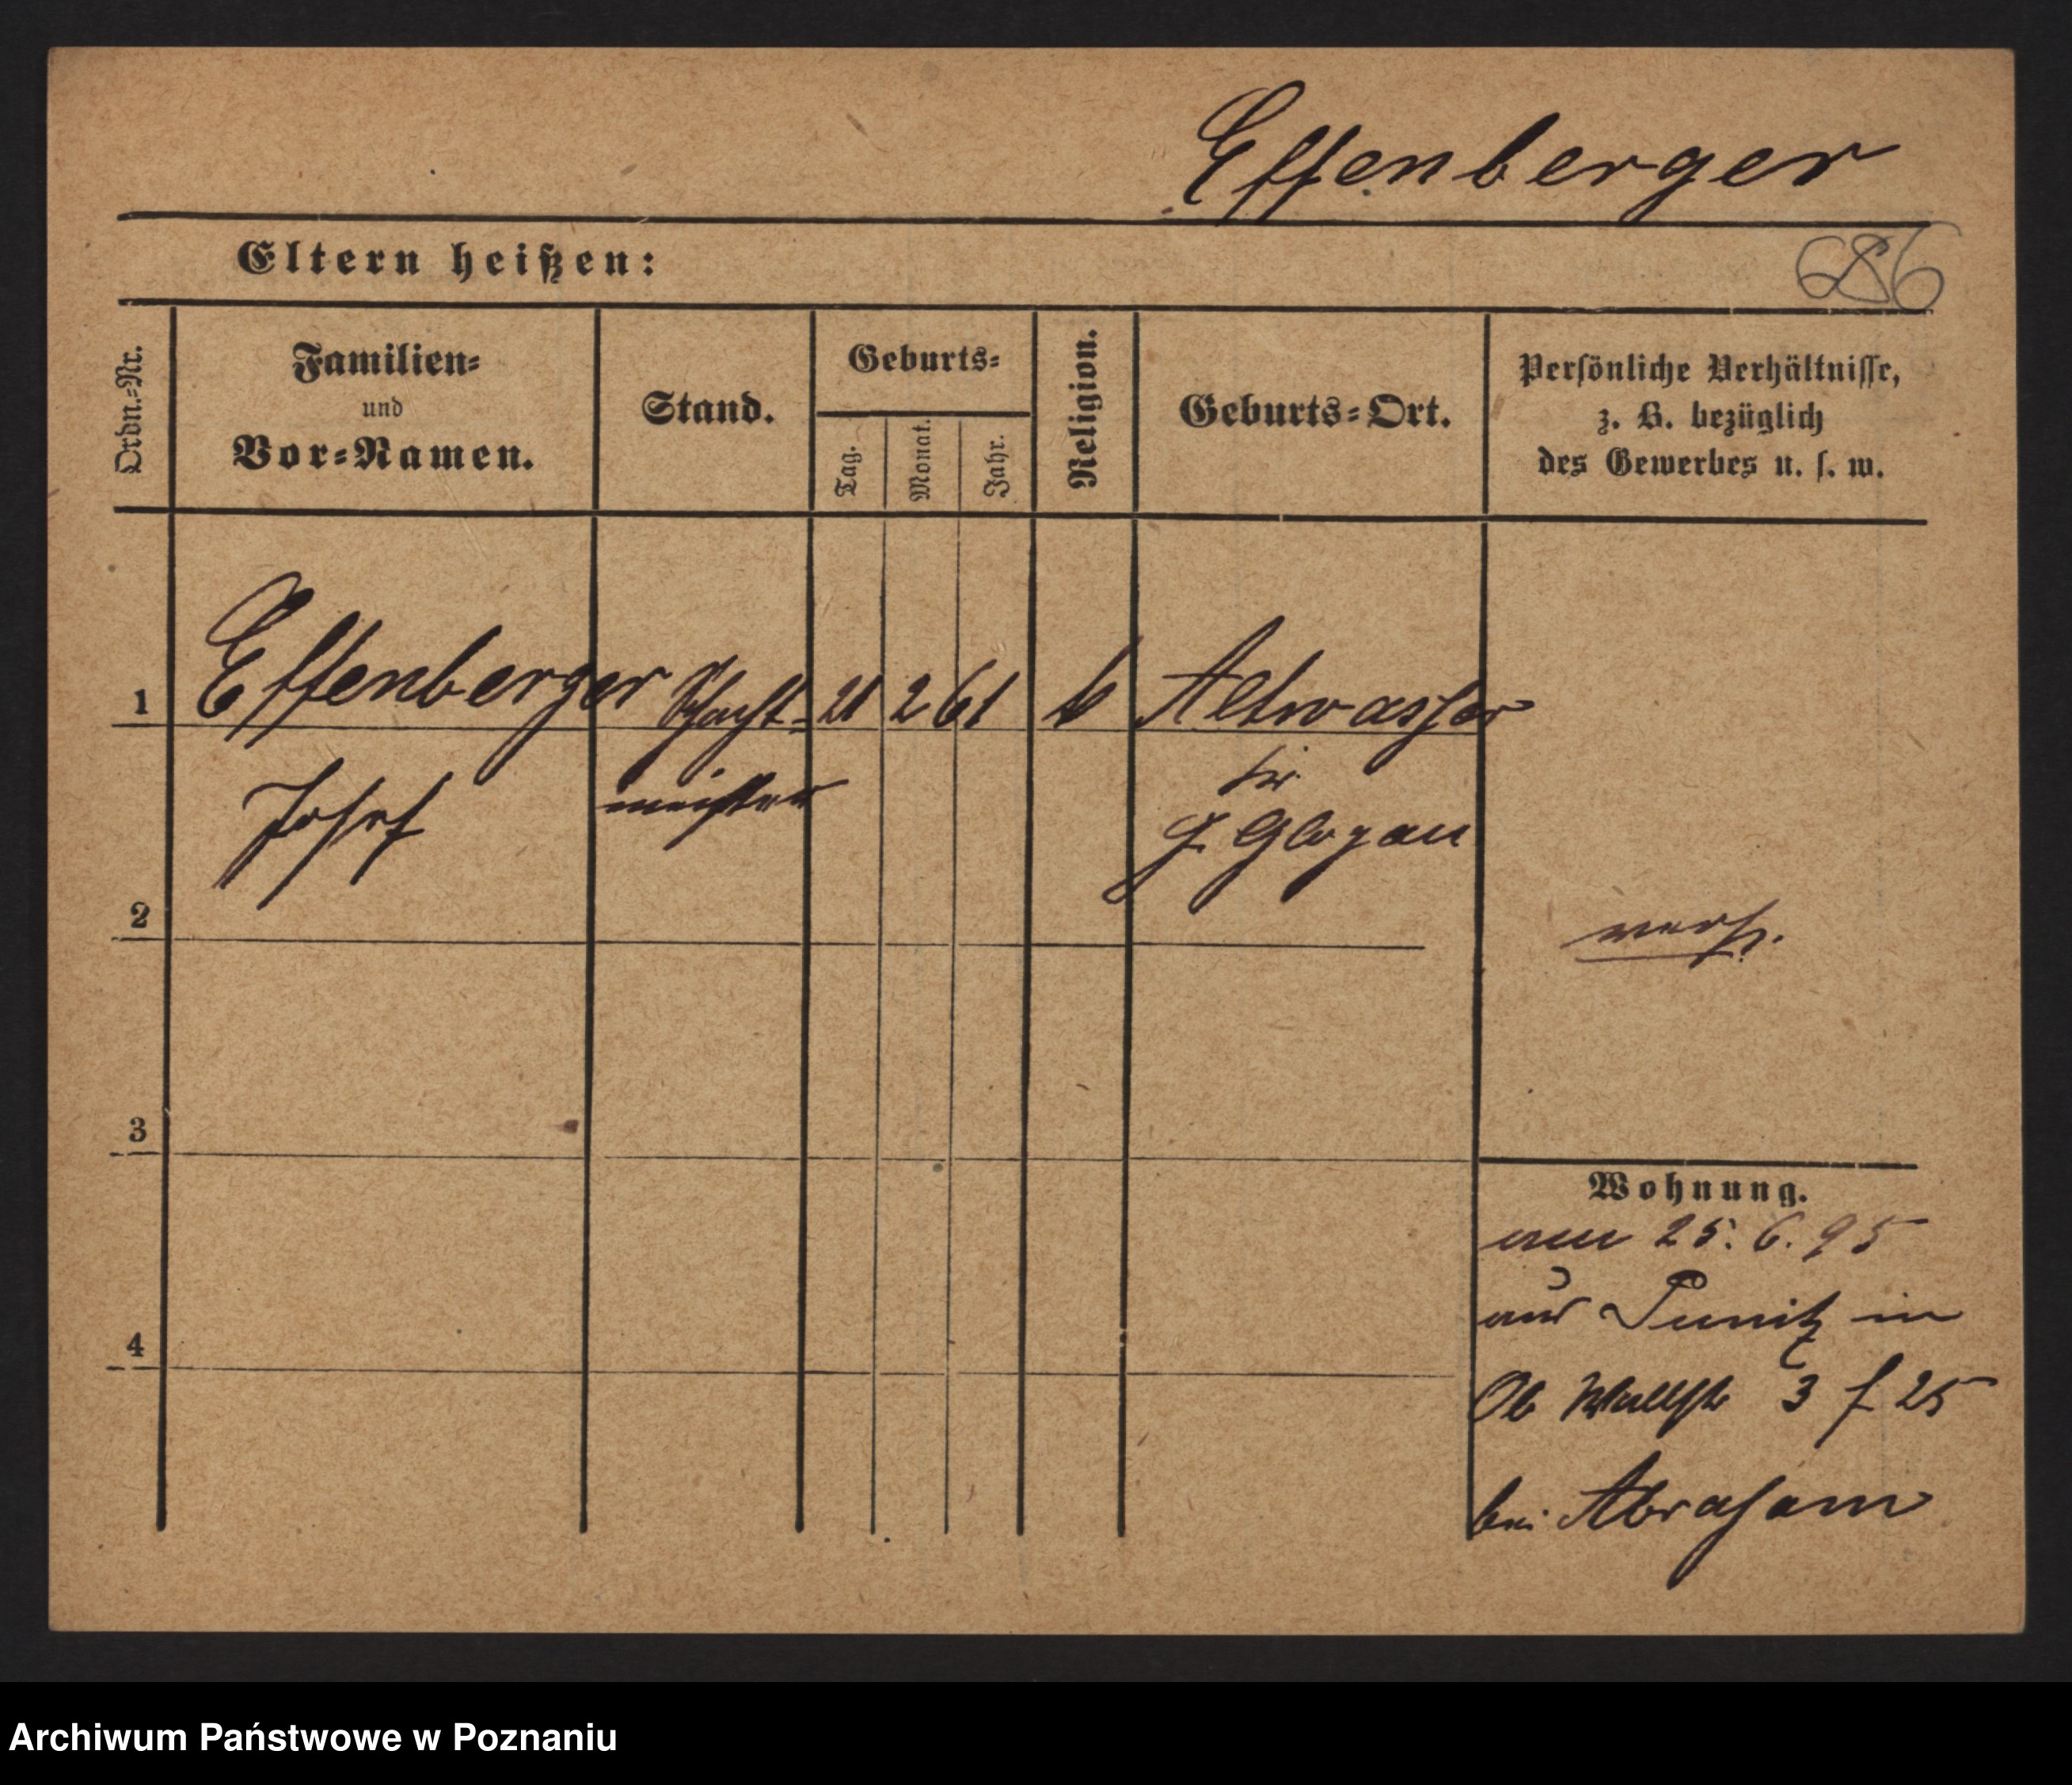 Effenberger
Eltern heißen:
686
Ordn.-Nr.
Familien-
und
Vor-Namen.
Stand.
Geburts-
Tag.
Monat.
Jahr.
Religion.
Geburts-Ort.
Persönliche Verhältnisse,
z. B. bezüglich
des Gewerbes u. s. w.
1 Effenberger Schacht- 21 2 61 k Altwasser
Josef meister
Kr
G. Glogau
2
verh.
3
4
Wohnung.
am 25. 6. 95
aus Punitz in
Ob Wallstr 3 f 25
bei Abraham
Archiwum Państwowe w Poznaniu